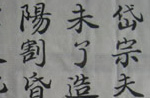 岱宗夫
未了造
陽割昏